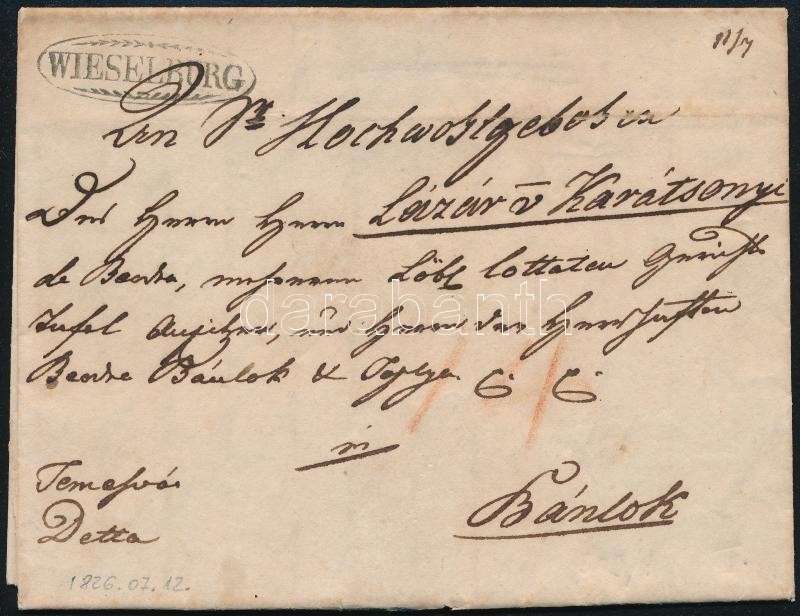 WIESELBURG
11/7
An Sr Hochwohlgeboren
Des Herrn Herrn Lázár v Karátsonyi
de Beodra, mehreren Löbl Gerichts
Tafel Beysitzer, und Herrn der Herrschaften
Beodra Bánlok & Toplya
in
Temesvár
Bánlok
Detta
1826.07.12.
darabanth